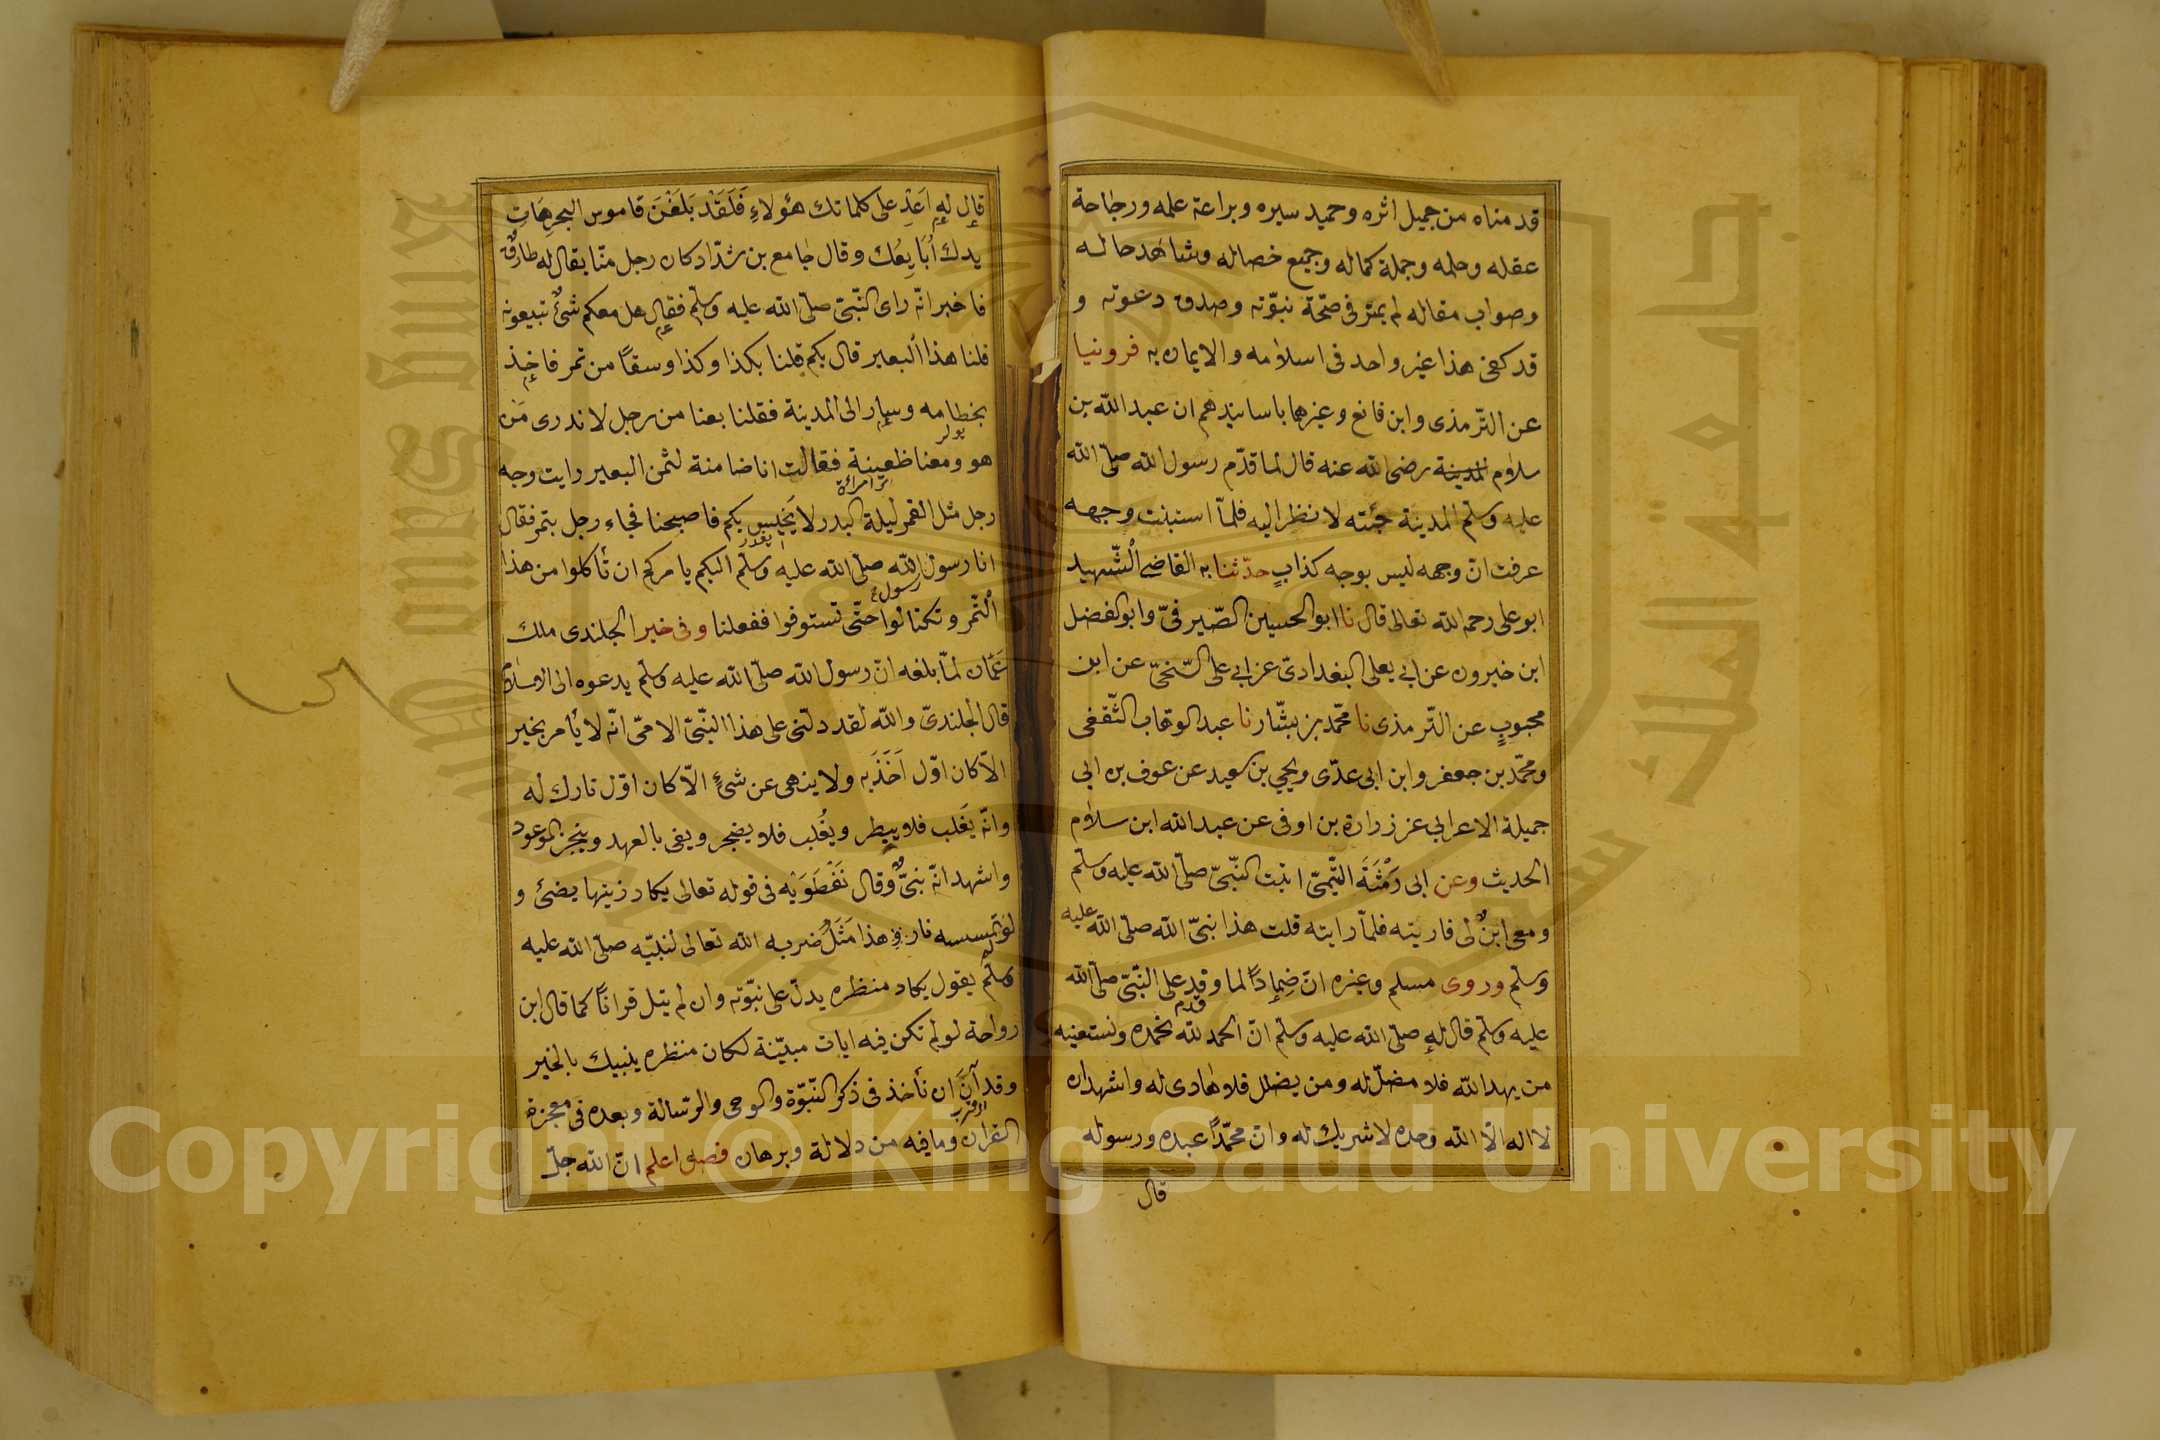 قدمناه من جميل اثره وحميد سيره وبراعة علمه ورجاحة
عقله وحلمه وجملة كماله وجميع خصاله وشاهد حاله
وصواب مقاله لم يمتر في صحّة نبوّته وصدق دعوته و
قد كفى هذا غير واحد في اسلامه والايمان به فروينا
عن التّرمذى وابن قانع وغيرهما باسانيدهم ان عبد الله بن
سلام المدينة رضى الله عنه قال لما قدّم رسول الله صلّى الله
عليه وسلّم المدينة جئته لانظر اليه فلمّا استبنت وجهه
عرفت انّ وجهه ليس بوجه كذابٍ حدّثنا به القاضى الشّهيد
ابو على رحمه الله تعالى قال نا ابو الحسين الصّيرفىّ وابو الفضل
ابن خيرون عن ابى يعلى البغدادىّ عن ابى على السّنجىّ عن ابن
محبوبٍ عن التّرمذى نا محمّد بن بشّار نا عبد الوهّاب الثّقفى
ومحمّد بن جعفر وابن ابى عدّى ويحيى بن سعيد عن عوف بن ابى
جميلة الاعرابى عن زرارة بن اوفى عن عبد الله ابن سلام
الحديث وعن ابى رَمْثَةَ التّيمىّ اتيت النّبىّ صلّى الله عليه وسلّم
ومعى ابنٌ لى فاريته فلمّا رايته قلت هذا نبىّ الله صلّى الله عليه
وسلّم وروى مسلم وغيره انّ ضِمادًا لما وفد على النّبىّ صلّى الله
قدم
عليه وسلّم قال له صلّى الله عليه وسلّم انّ الحمد لله نحمده ونستعينه
من يهد الله فلا مضلّ له ومن يضلل فلا هادى له واشهد ان
لا اله الّا الله وحده لا شريك له وانّ محمّدًا عبده ورسوله
قال
قال له اَعَدْ على كلماتك هؤلاءِ فَلَقَدْ بَلَغْنَ قاموس البحر هَاتِ
يدك اُبَايِعُك وقال جامع بن شدّاد كان رجل منّا يقال له طارقٌ
فاخبر انّه راى النّبىّ صلّى الله عليه وسلّم فقال هل معكم شئٌ تبيعونه
قلنا هذا البعير قال بكم قلنا بكذا وكذا وسقًا من تمر فاخذ
بخطامه وسار الى المدينة فقلنا بعنا من رجل لا ندرى مَن
هو ومعنا ظعينة فقالت انا ضامنة لثمن البعير رايت وجه
رجل مثل القمر ليلة البدر لا يَخِيس بكم فاصبحنا فجاء رجل بتمر فقال
انا رسول رسول الله صلّى الله عليه وسلّم اليكم يامركم ان تأكلوا من هذا
التّمر وتكتالوا حتّى تستوفوا ففعلنا وفى خبر الجلندى ملك
عَمّان لمّا بلغه انّ رسول الله صلّى الله عليه وسلّم يدعوه الى الاسلام
قال الجلندىّ والله لقد دلّنى على هذا النّبىّ الامىّ انّه لا يأمر بخير
الّا كان اوّل اَخَذَ به ولا ينهى عن شئٍ الّا كان اوّل تارك له
وانّه يَغلب فلا يبطر ويُغْلب فلا يضجر ويفى بالعهد وينجز الموعود
واشهد انّه نبىٌّ وقال نَفْطَوَيْه فى قوله تعالى يكاد زيتها يضئ و
لو لم تمسسه نار هذا مَثَلٌ ضربه الله تعالى لنبيّه صلّى الله عليه
وسلّم يقول يكاد منظره يدلّ على نبوّته وان لم يتل قرانًا كما قال ابن
رواحة لو لم تكن فيه ايات مبيّنة لكان منظره ينبيك بالخير
وقد آنَ ان نأخذ فى ذكر النّبوّة والوحى والرّسالة وبعده فى معجزة
القران وما فيه من دلالة وبرهان فصل اعلم انّ الله جلّ
Copyright © King Saud University